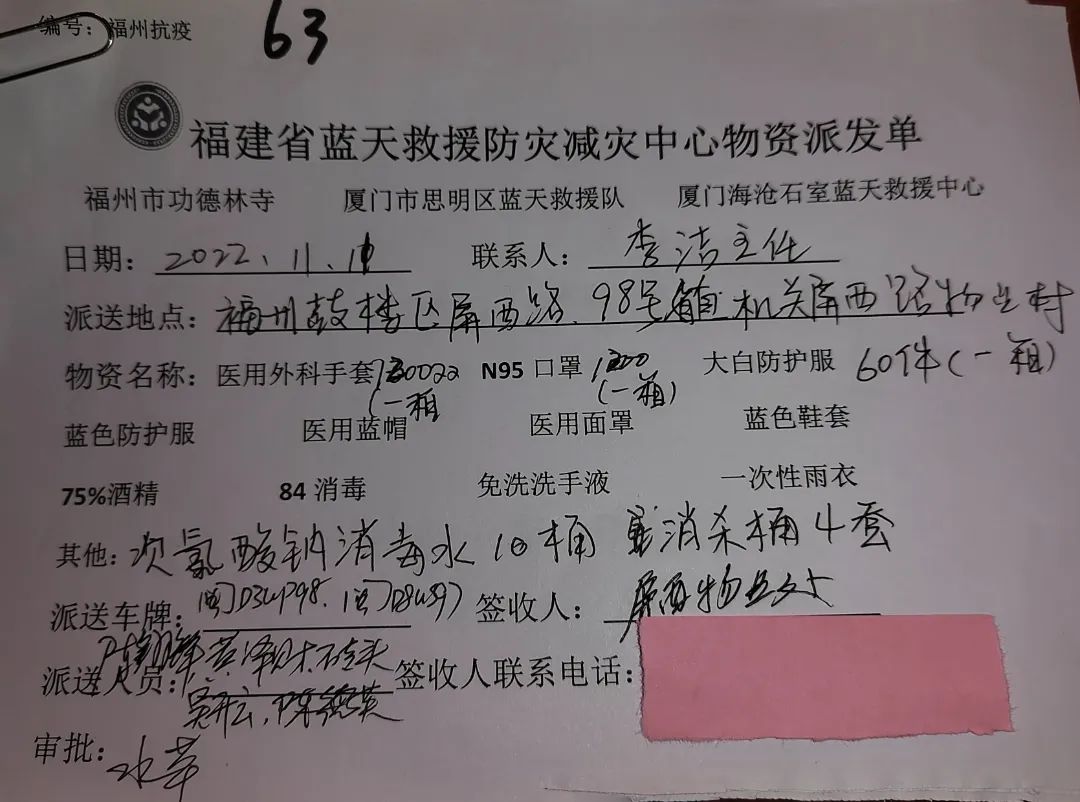 编号：福州抗疫 63
福建省蓝天救援防灾减灾中心物资派发单
福州市功德林寺 厦门市思明区蓝天救援队 厦门海沧石室蓝天救援中心
日期：2022.11. 联系人：李洁主任
派送地点：福州鼓楼区屏西路.98号 机关屏西路物业村
物资名称：医用外科手套 (一箱 N95口罩 (一箱) 大白防护服 60件(一箱)
蓝色防护服 医用蓝帽 医用面罩 蓝色鞋套
75%酒精 84消毒 免洗洗手液 一次性雨衣
其他：次氯酸钠消毒水10桶 消杀桶4套
派送车牌： 签收人：屏西物业
派送人员： 签收人联系电话：
审批：